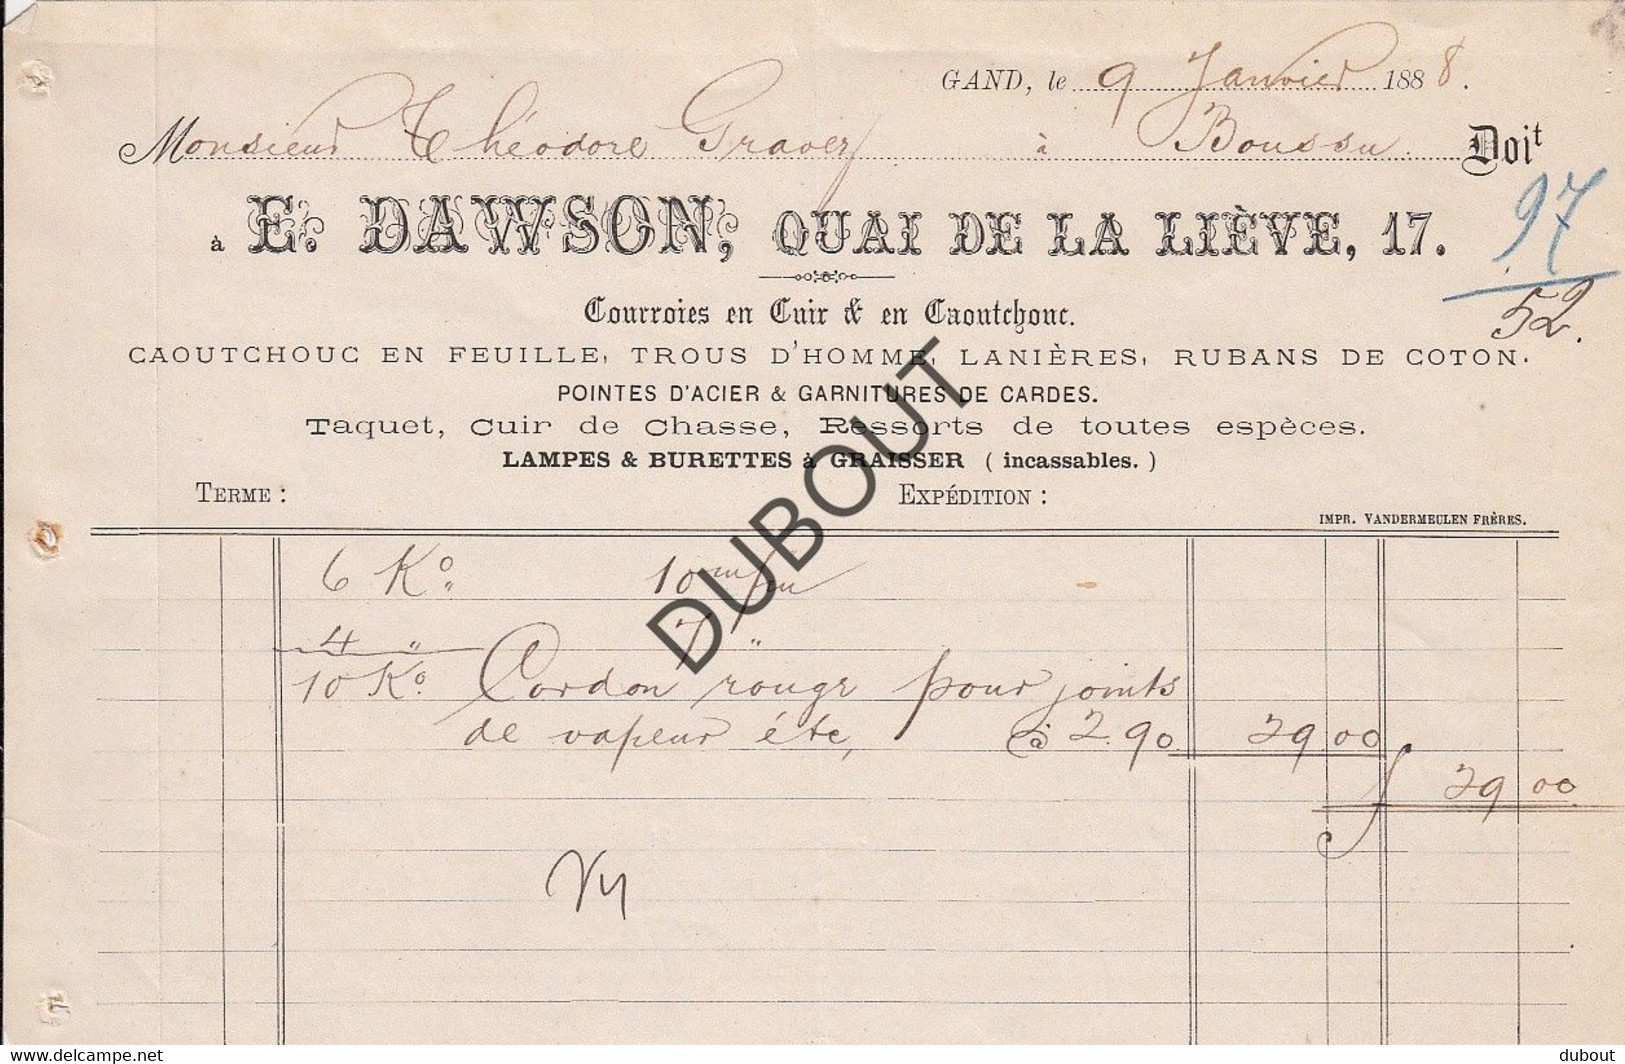 GAND, le 9 Janvier 1888.
Monsieur Théodore Gravez à Boussu Doit
97
à E. DAWSON, QUAI DE LA LIÈVE, 17.
52.
Courroies en Cuir & en Caoutchouc.
CAOUTCHOUC EN FEUILLE, TROUS D'HOMME, LANIÈRES, RUBANS DE COTON.
POINTES D'ACIER & GARNITURES DE CARDES.
Taquet, Cuir de Chasse, Ressorts de toutes espèces.
LAMPES & BURETTES à GRAISSER ( incassables. )
TERME : EXPÉDITION :
IMPR. VANDERMEULEN FRÈRES.
6 Ko. 10 m/m
4 " 7 "
10 Ko. Cordon rouge pour joints
de vapeur étc, à 2.90 29 00
29 00
DUBOUT
www.delcampe.net
dubout